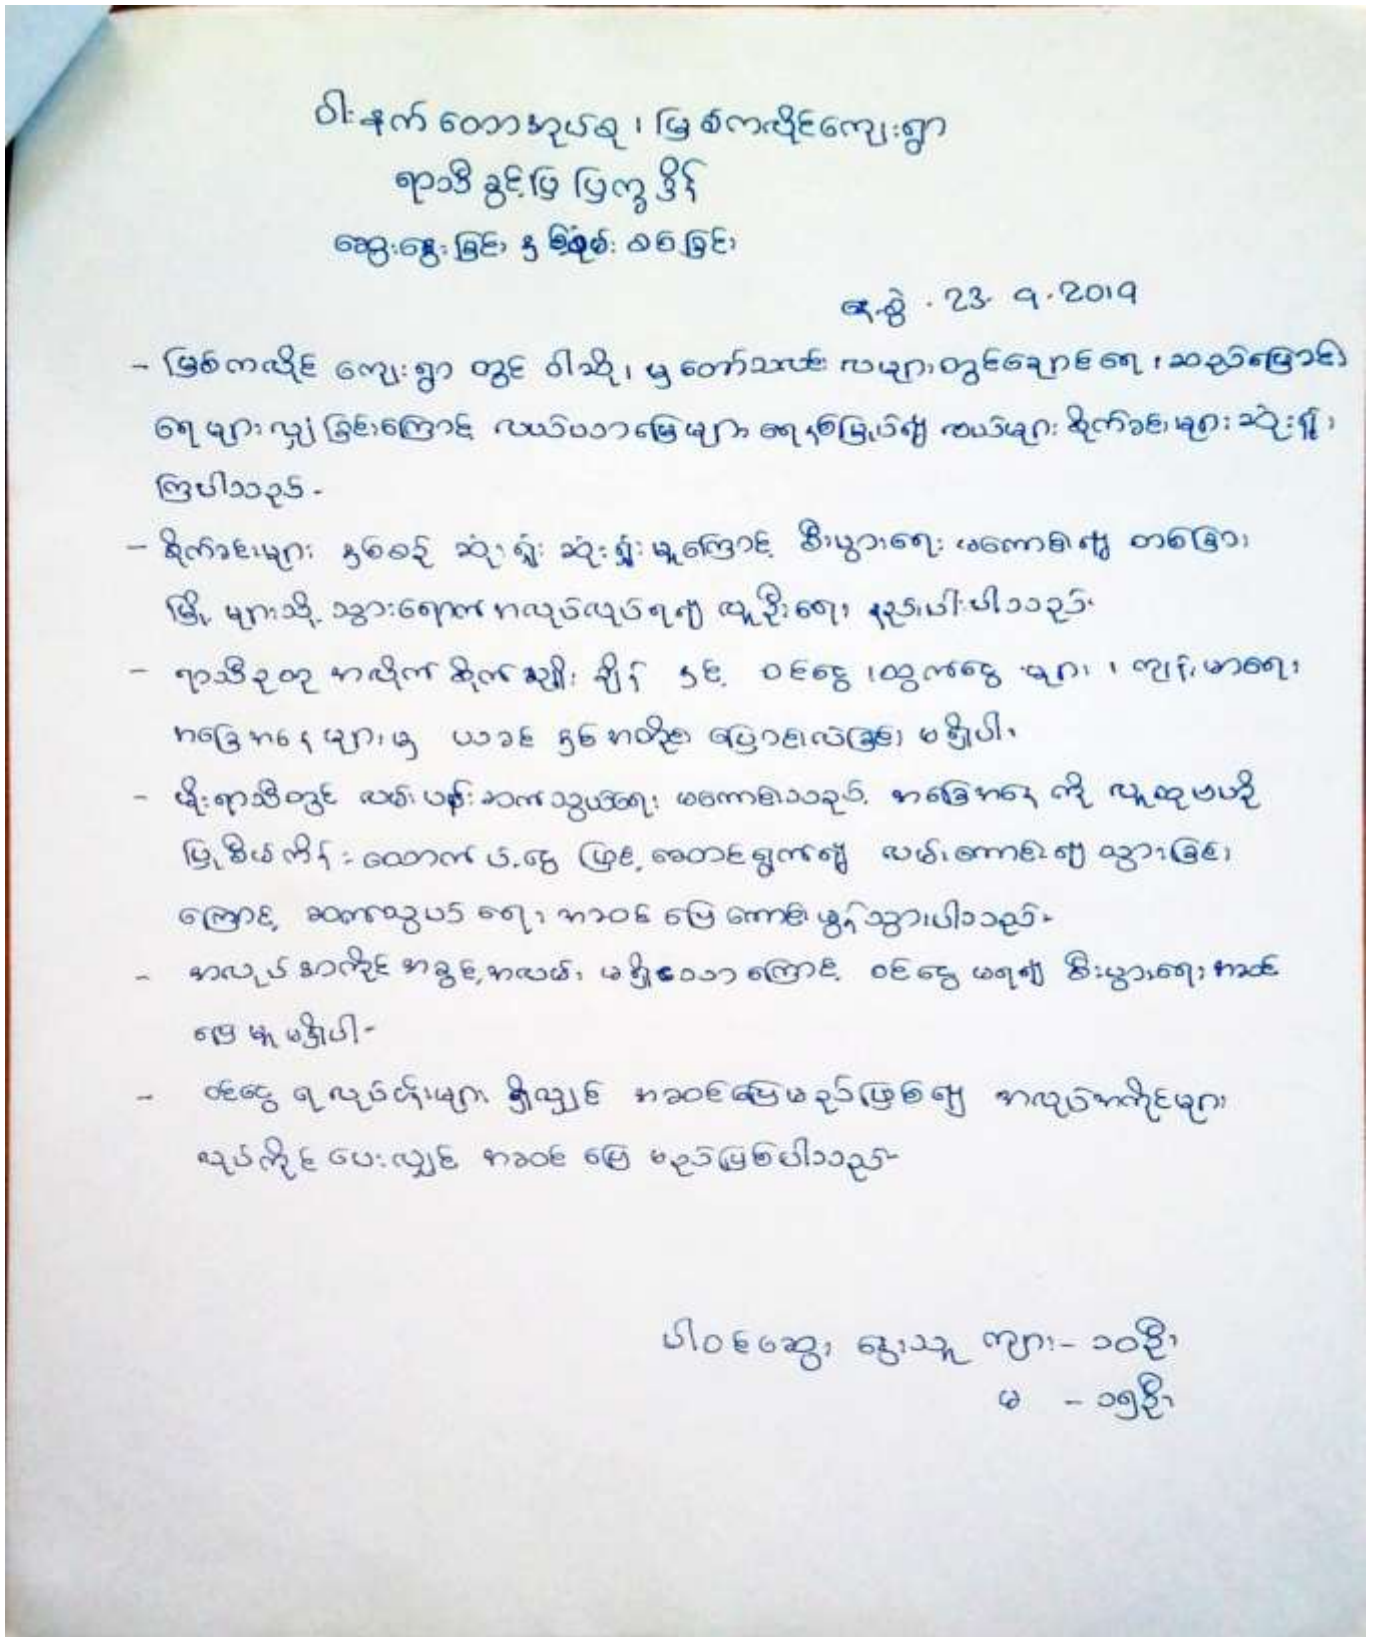 ဝါးနက်တောအုပ်စု၊ မြစ်ကလိုင်ကျေးရွာ
ရာသီခွင်ပြ ပြက္ခဒိန်
ဆွေးနွေးခြင်း နှင့် စစ်ခြင်း
နေ့စွဲ . 23. 9. 2019
- မြစ်ကလိုင် ကျေးရွာ တွင် ဝါဆို၊ မှ တော်သလင်း လများတွင်ချောင်းရေ ၊ ဆည်မြောင်း
ရေများလျှံခြင်းကြောင့် လယ်ယာမြေများ ရေနစ်မြုပ်၍ လယ်များ စိုက်ခင်းများ ဆုံးရှုံး
ကြပါသည်-
- စိုက်ခင်းများ နှစ်စဉ် ဆုံးရှုံး ဆုံးရှုံးမှုကြောင့် စီးပွားရေး မကောင်း၍ တစ်ခြား
မြို့ များသို့ သွားရောက်အလုပ်လုပ်ရ၍ လူဦးရေ နည်းပါးပါသည်-
- ရာသီဥတု အလိုက် စိုက်ပျိုး ချိန် နှင့် ဝင်ငွေ ၊ထွက်ငွေ များ ၊ ကျန်းမာရေး
အခြေအနေ များမှ ယခင် နှစ်အတိုင်း ပြောင်းလဲခြင်း မရှိပါ၊
- မိုးရာသီတွင် လမ်းပန်းဆက်သွယ်ရေး မကောင်းသည့် အခြေအနေ ကို လူထုဗဟို
ပြုစီမံကိန်း ထောက်ပံ့ငွေ ဖြင့် ဆောင်ရွက်၍ လမ်းကောင်း၍ သွားခြင်း
ကြောင့် ဆက်သွယ် ရေး အဆင် ပြေ ကောင်းမွန်သွားပါသည်-
- အလုပ် အကိုင် အခွင့်အလမ်း မရှိသော ကြောင့် ဝင်ငွေ မရ၍ စီးပွားရေး အဆင်
ပြေ မှု မရှိပါ-
- ဝင်ငွေ ရ လုပ်ငန်းများ ရှိလျှင် အဆင်ပြေမည်ဖြစ်၍ အလုပ်အကိုင်များ
လုပ်ကိုင် ပေးလျှင် အဆင် ပြေ မည်ဖြစ်ပါသည်-
ပါဝင်ဆွေး နွေးသူ ကျား - ၁၀ဦး
မ - ၁၅ဦး